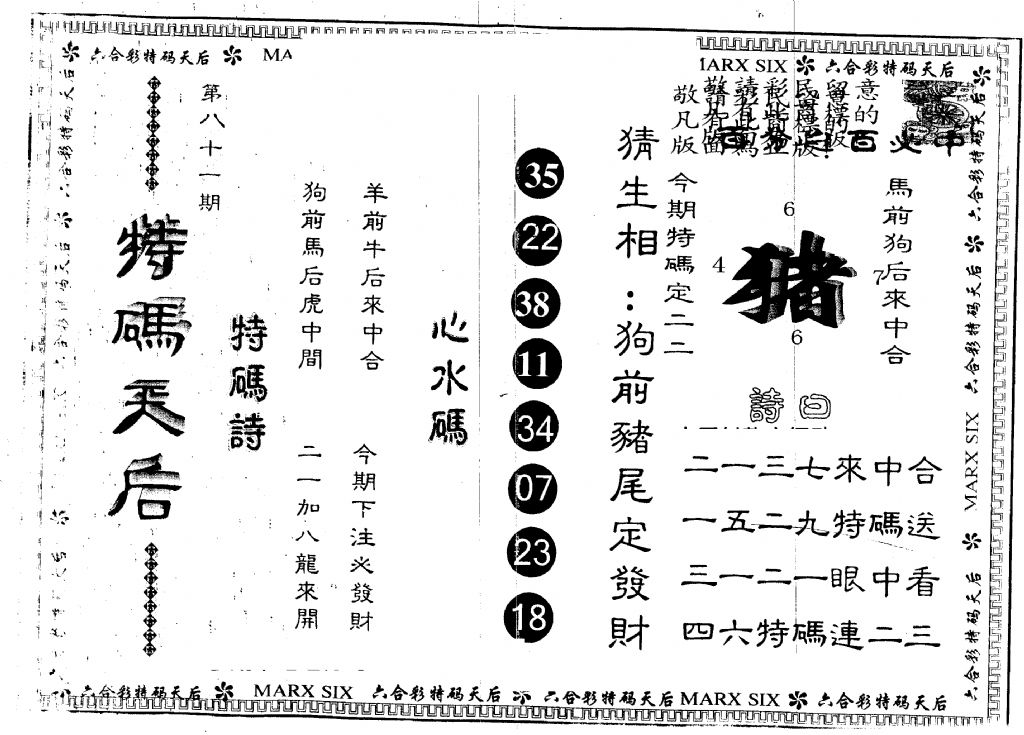 六合彩特码天后
MA
MARX SIX
六合彩特码天后
第八十一期
特碼天后
特碼詩
羊前牛后來中合
狗前馬后虎中間
今期下注必發財
二一加八龍來開
心水碼
35
22
38
11
34
07
23
18
猜生相：狗前豬尾定發財
敬請彩民留意
今期特碼定二二
6
4
猪
7
6
馬前狗后來中合
詩曰
二一三七來中合
一五二九特碼送
三一二一眼中看
四六特碼連二三
六合彩特码天后
MARX SIX
六合彩特码天后
六合彩特码天后
MARX SIX
六合彩特码天后
六合彩特码天后
六合彩特码天后
MARX SIX
六合彩特码天后